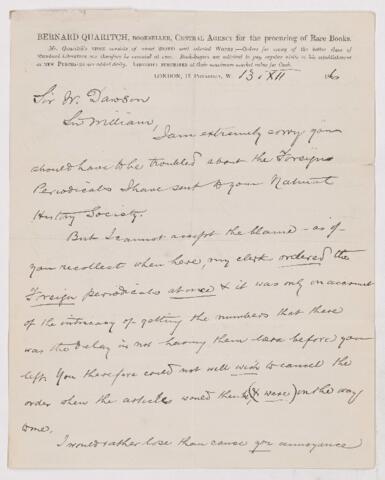 BERNARD QUARITCH, BOOKSELLER, CENTRAL AGENCY for the procuring of Rare Books.
Mr. Quaritch's STOCK consists of CHOICE BOOKS and selected WORKS
LONDON, 15 PICCADILLY, W. 13. XII
Sir W. Dawson
Sir William,
I am extremely sorry you
should have to be troubled about the Foreign
Periodicals I have sent to your Natural
History Society.
But I cannot accept the blame - as if
you recollect when here, my clerk ordered the
Foreign periodicals at once & it was only on account
of the intricacy of getting the numbers that there
was the delay in not having them here before you
left. You therefore could not well wish to cancel the
order when the articles would then be (& were) on the way
home.
I would rather lose than cause you annoyance